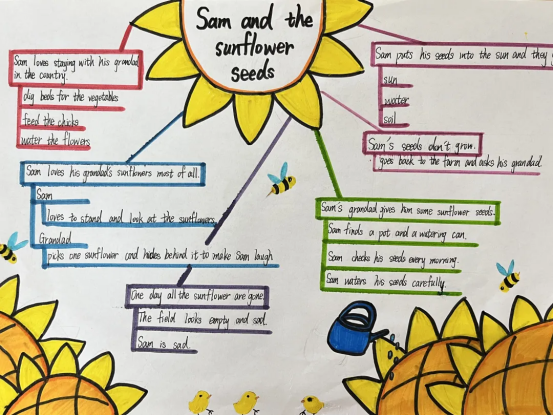 Sam and the
sunflower
seeds
Sam loves staying with his grandad
in the country.
dig beds for the vegetables
feed the chicks
water the flowers
Sam loves his grandad's sunflowers most of all.
Sam
loves to stand and look at the sunflowers
Grandad
picks one sunflower and hides behind it to make Sam laugh
One day all the sunflower are gone.
The field looks empty and sad.
Sam is sad.
Sam's grandad gives him some sunflower seeds.
Sam finds a pot and a watering can.
Sam checks his seeds every morning.
Sam waters his seeds carefully.
Sam puts his seeds into the sun and they g
sun
water
soil
Sam's seeds don't grow.
goes back to the farm and asks his grandad.